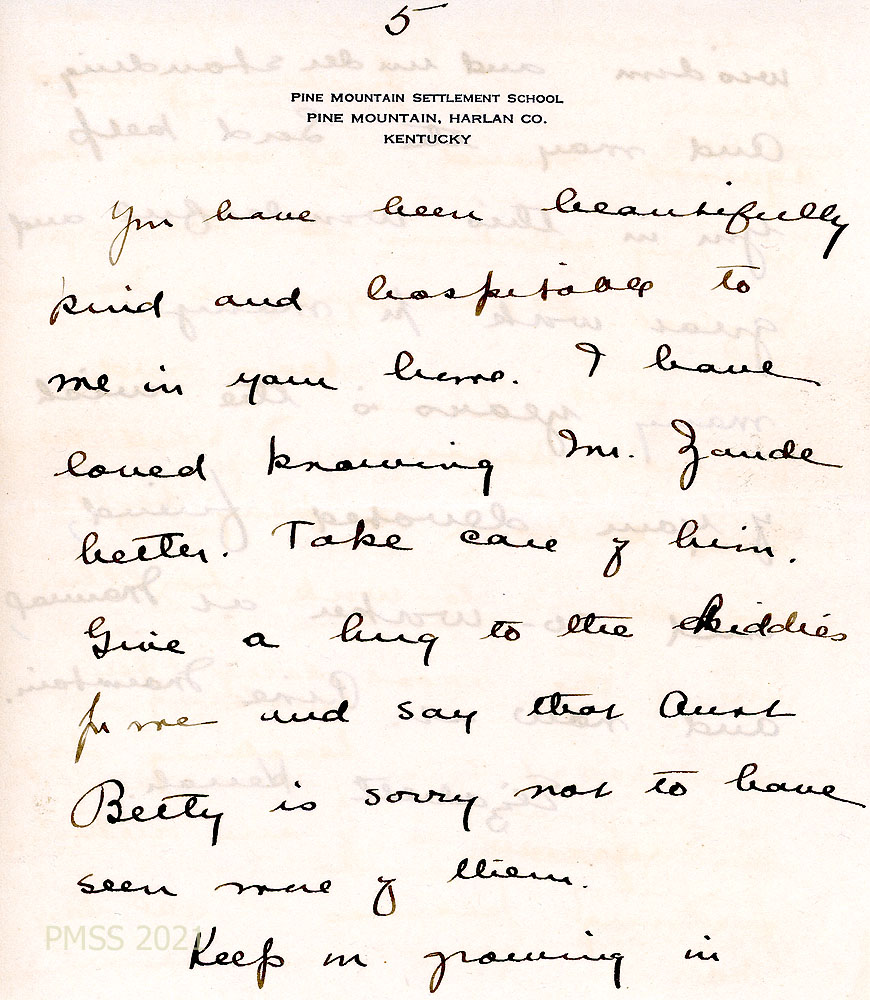 5
PINE MOUNTAIN SETTLEMENT SCHOOL
PINE MOUNTAIN, HARLAN CO.
KENTUCKY
You have been beautifully
kind and hospitable to
me in your home. I have
loved knowing Mr. Zande
better. Take care of him.
Give a hug to the kiddies
for me and say that Aunt
Betty is sorry not to have
seen more of them.
Keep on growing in
PMSS 2021